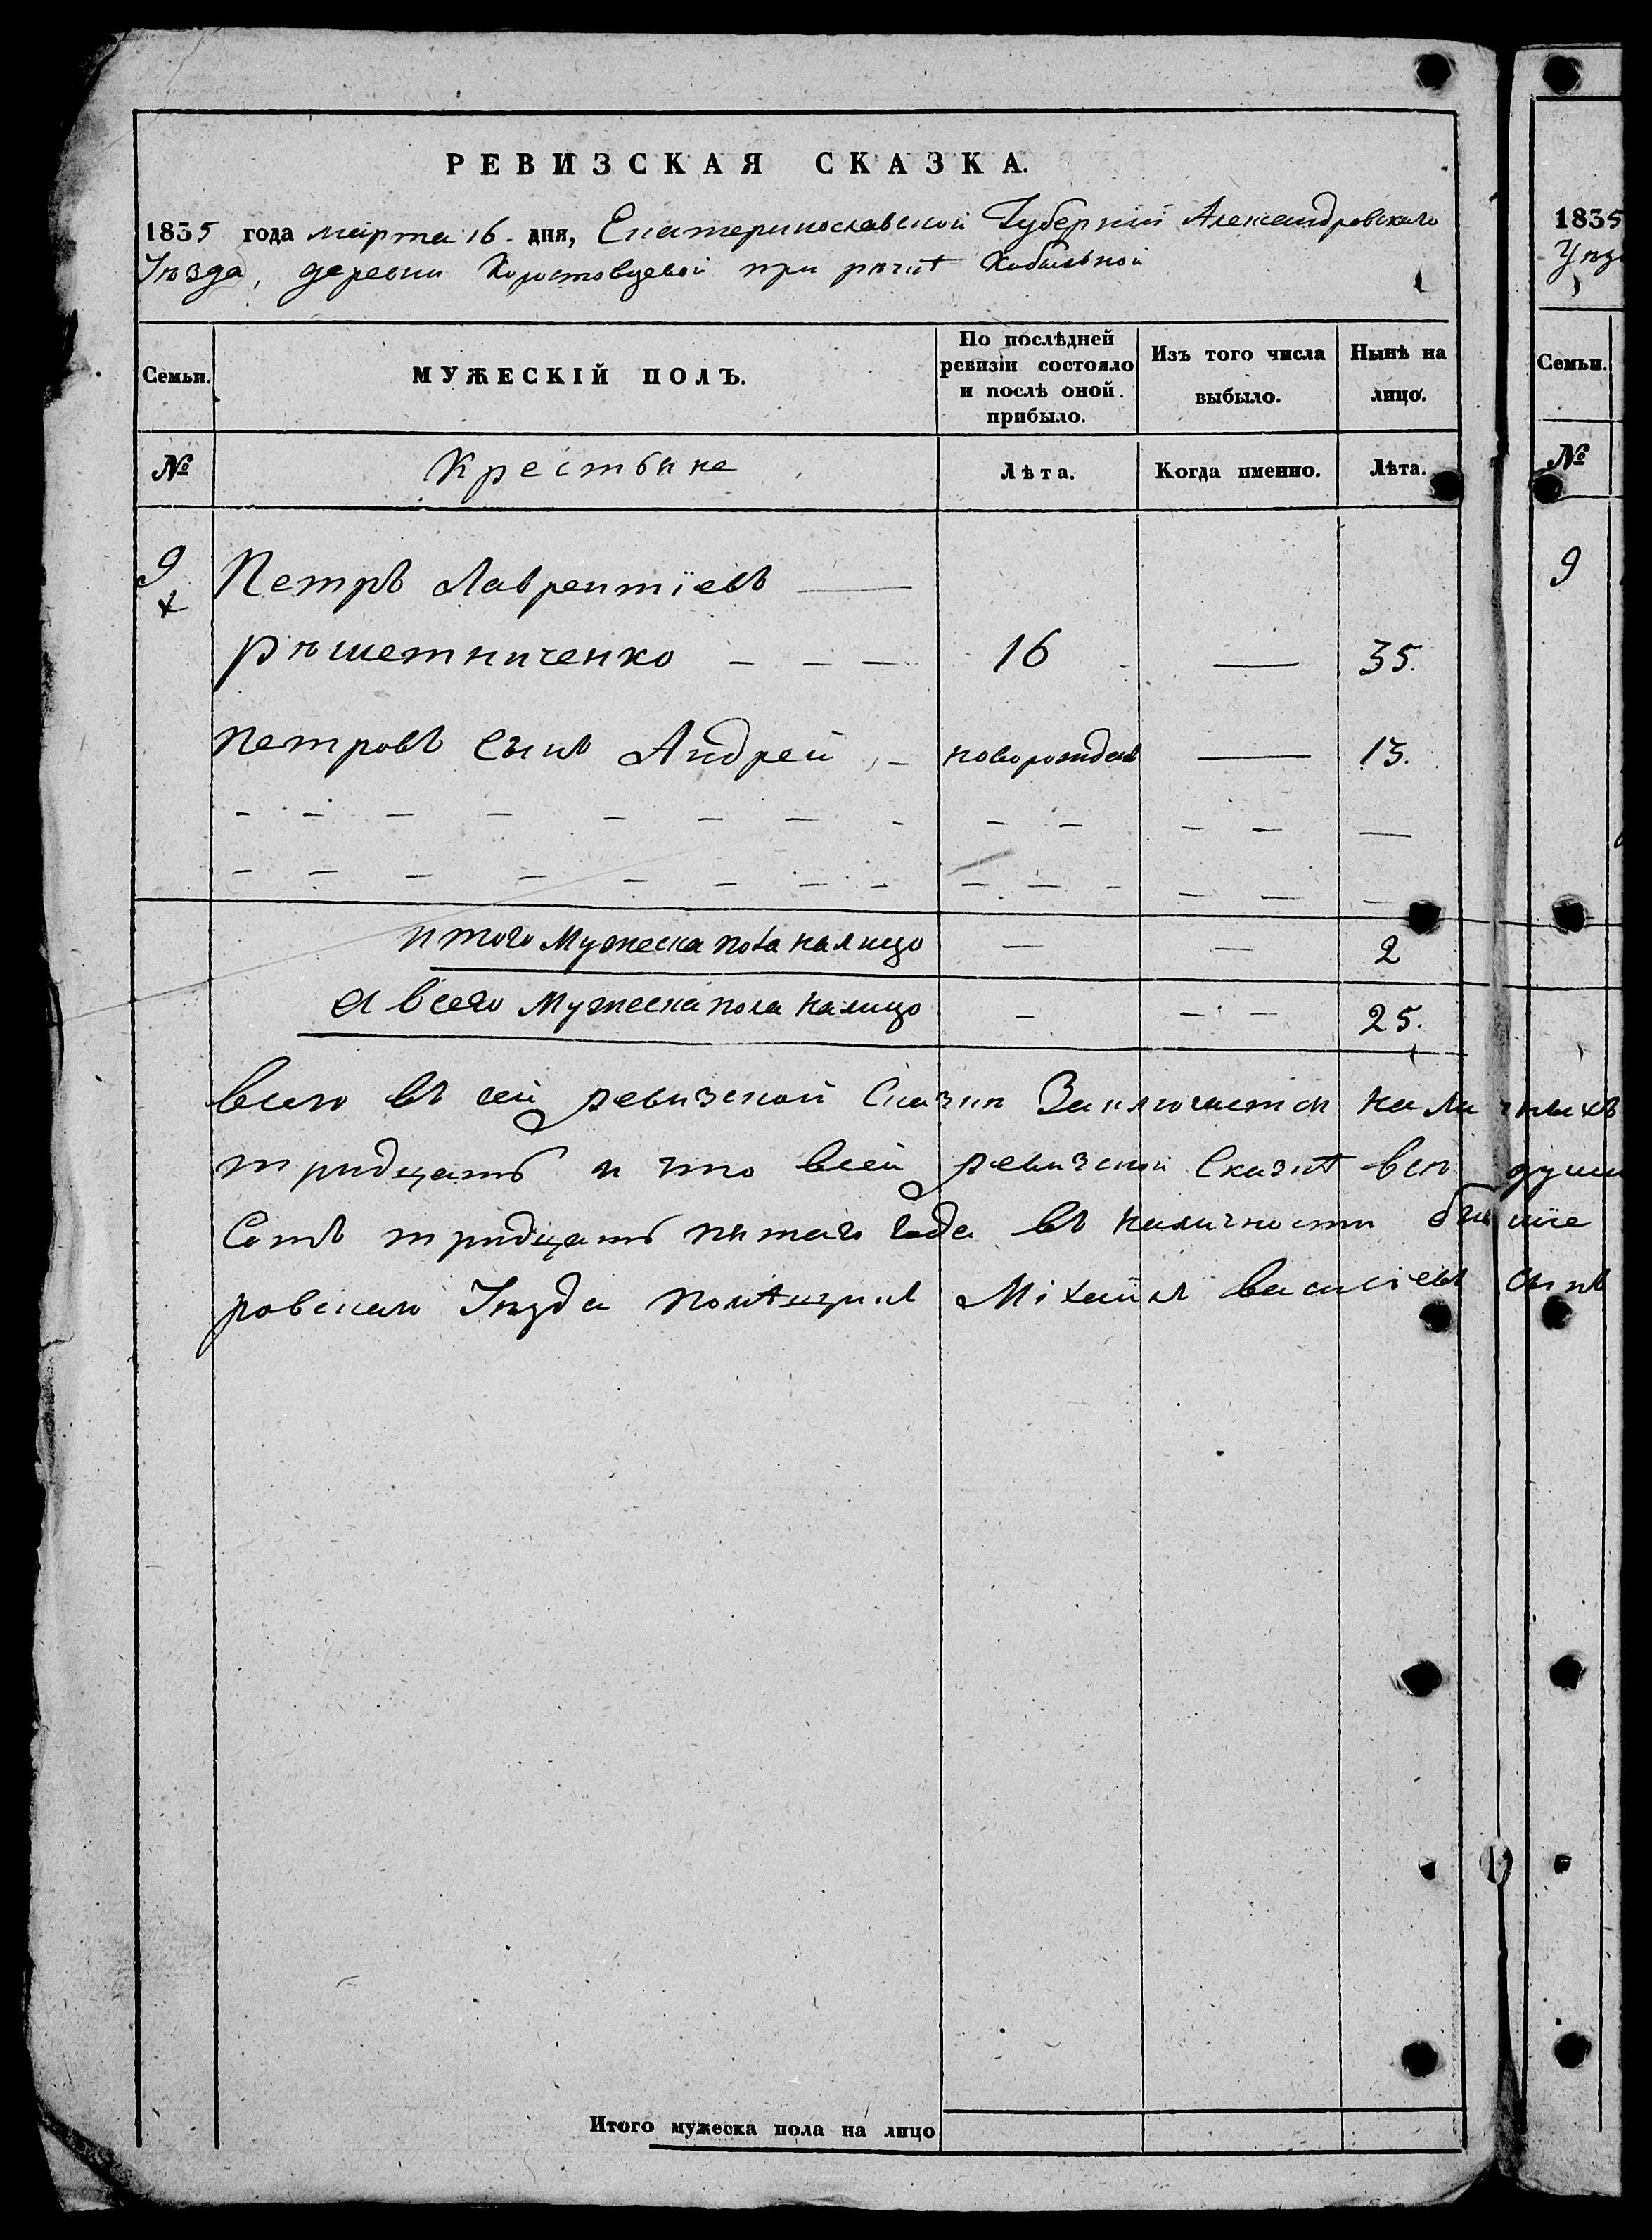 РЕВИЗСКАЯ СКАЗКА.
1835 года марта 16. дня, Екатеринославской Губернїи Александровскаго
Уѣзда, деревни Коростовцевой при рѣчкѣ Кобыльной
Семьи.
МУЖЕСКІЙ ПОЛЪ.
По послѣдней ревизіи состояло и послѣ оной прибыло.
Изъ того числа выбыло.
Нынѣ на лицо.
№
Крестьяне
Лѣта.
Когда именно.
Лѣта.
9 Петръ Лаврентїевъ
рѣшетниченко 16 — 35.
Петровъ Сынъ Андрей новорожден — 13.
итого Мужеска пола налицо — — 2
А всего Мужеска пола налицо — — 25.
всего въ сей ревизской Сказки Заключается наличныхъ
тридцать и что всей ревизской Сказкѣ всѣ души
Сотъ тридцать пятаго года въ наличности бывшїе
ровскаго Уѣзда помѣщикъ Міхаилъ васильевъ сынъ
Итого мужеска пола на лицо
1835
Уѣз
Семьи.
№
9